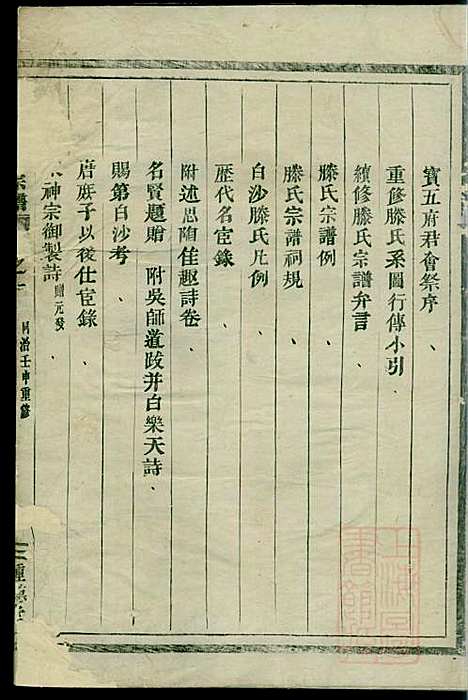 寳五府君會祭序、
重修滕氏系圖行傳小引
續修滕氏宗譜弁言
滕氏宗譜例
滕氏宗譜祠規
白沙滕氏凡例
歷代名宦錄
附述思陶佳趣詩卷
名賢題贈　附吳師道跋并白樂天詩、
賜第白沙考、
唐庶子以後仕宦錄、
神宗御製詩贈元發、
宗譜
卷之一
同治壬申重修